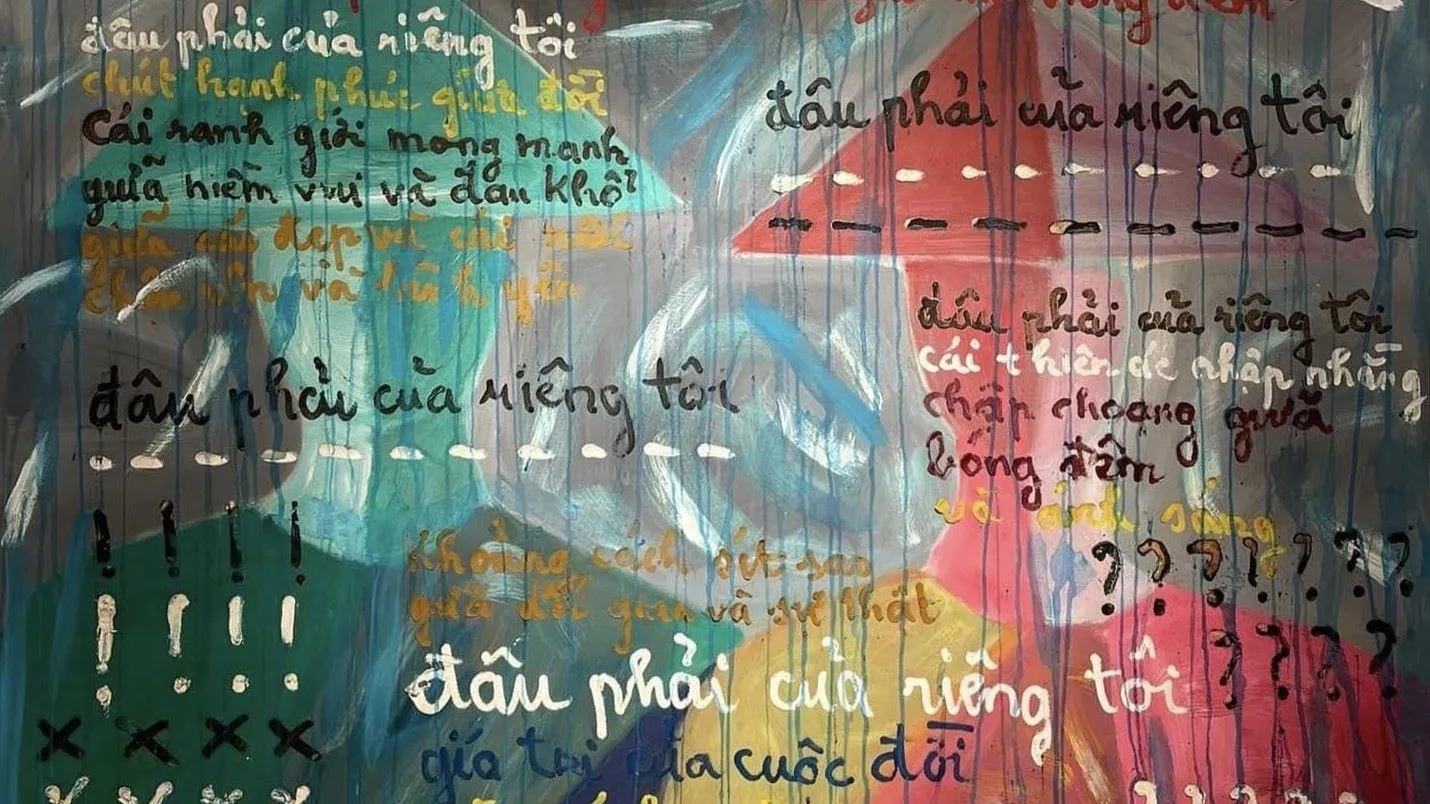 đâu phải của riêng tôi
chút hạnh phúc giữa đời
Cái ranh giới mong manh
giữa niềm vui và đau khổ
giữa cái đẹp và cái
và
đâu phải của riêng tôi
! ! ! !
! ! ! !
× × × ×
đâu phải của riêng tôi
đâu phải của riêng tôi
cái thiên để nhập nhằng
chập choang giữa
bóng đêm
và ánh sáng
? ? ? ? ? ? ?
? ? ? ?
Khoảng cách sít sao
giữa dối gian và sự thật
đâu phải của riêng tôi
giá trị của cuộc đời